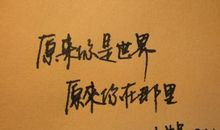 原来你是世界
原來你在那里